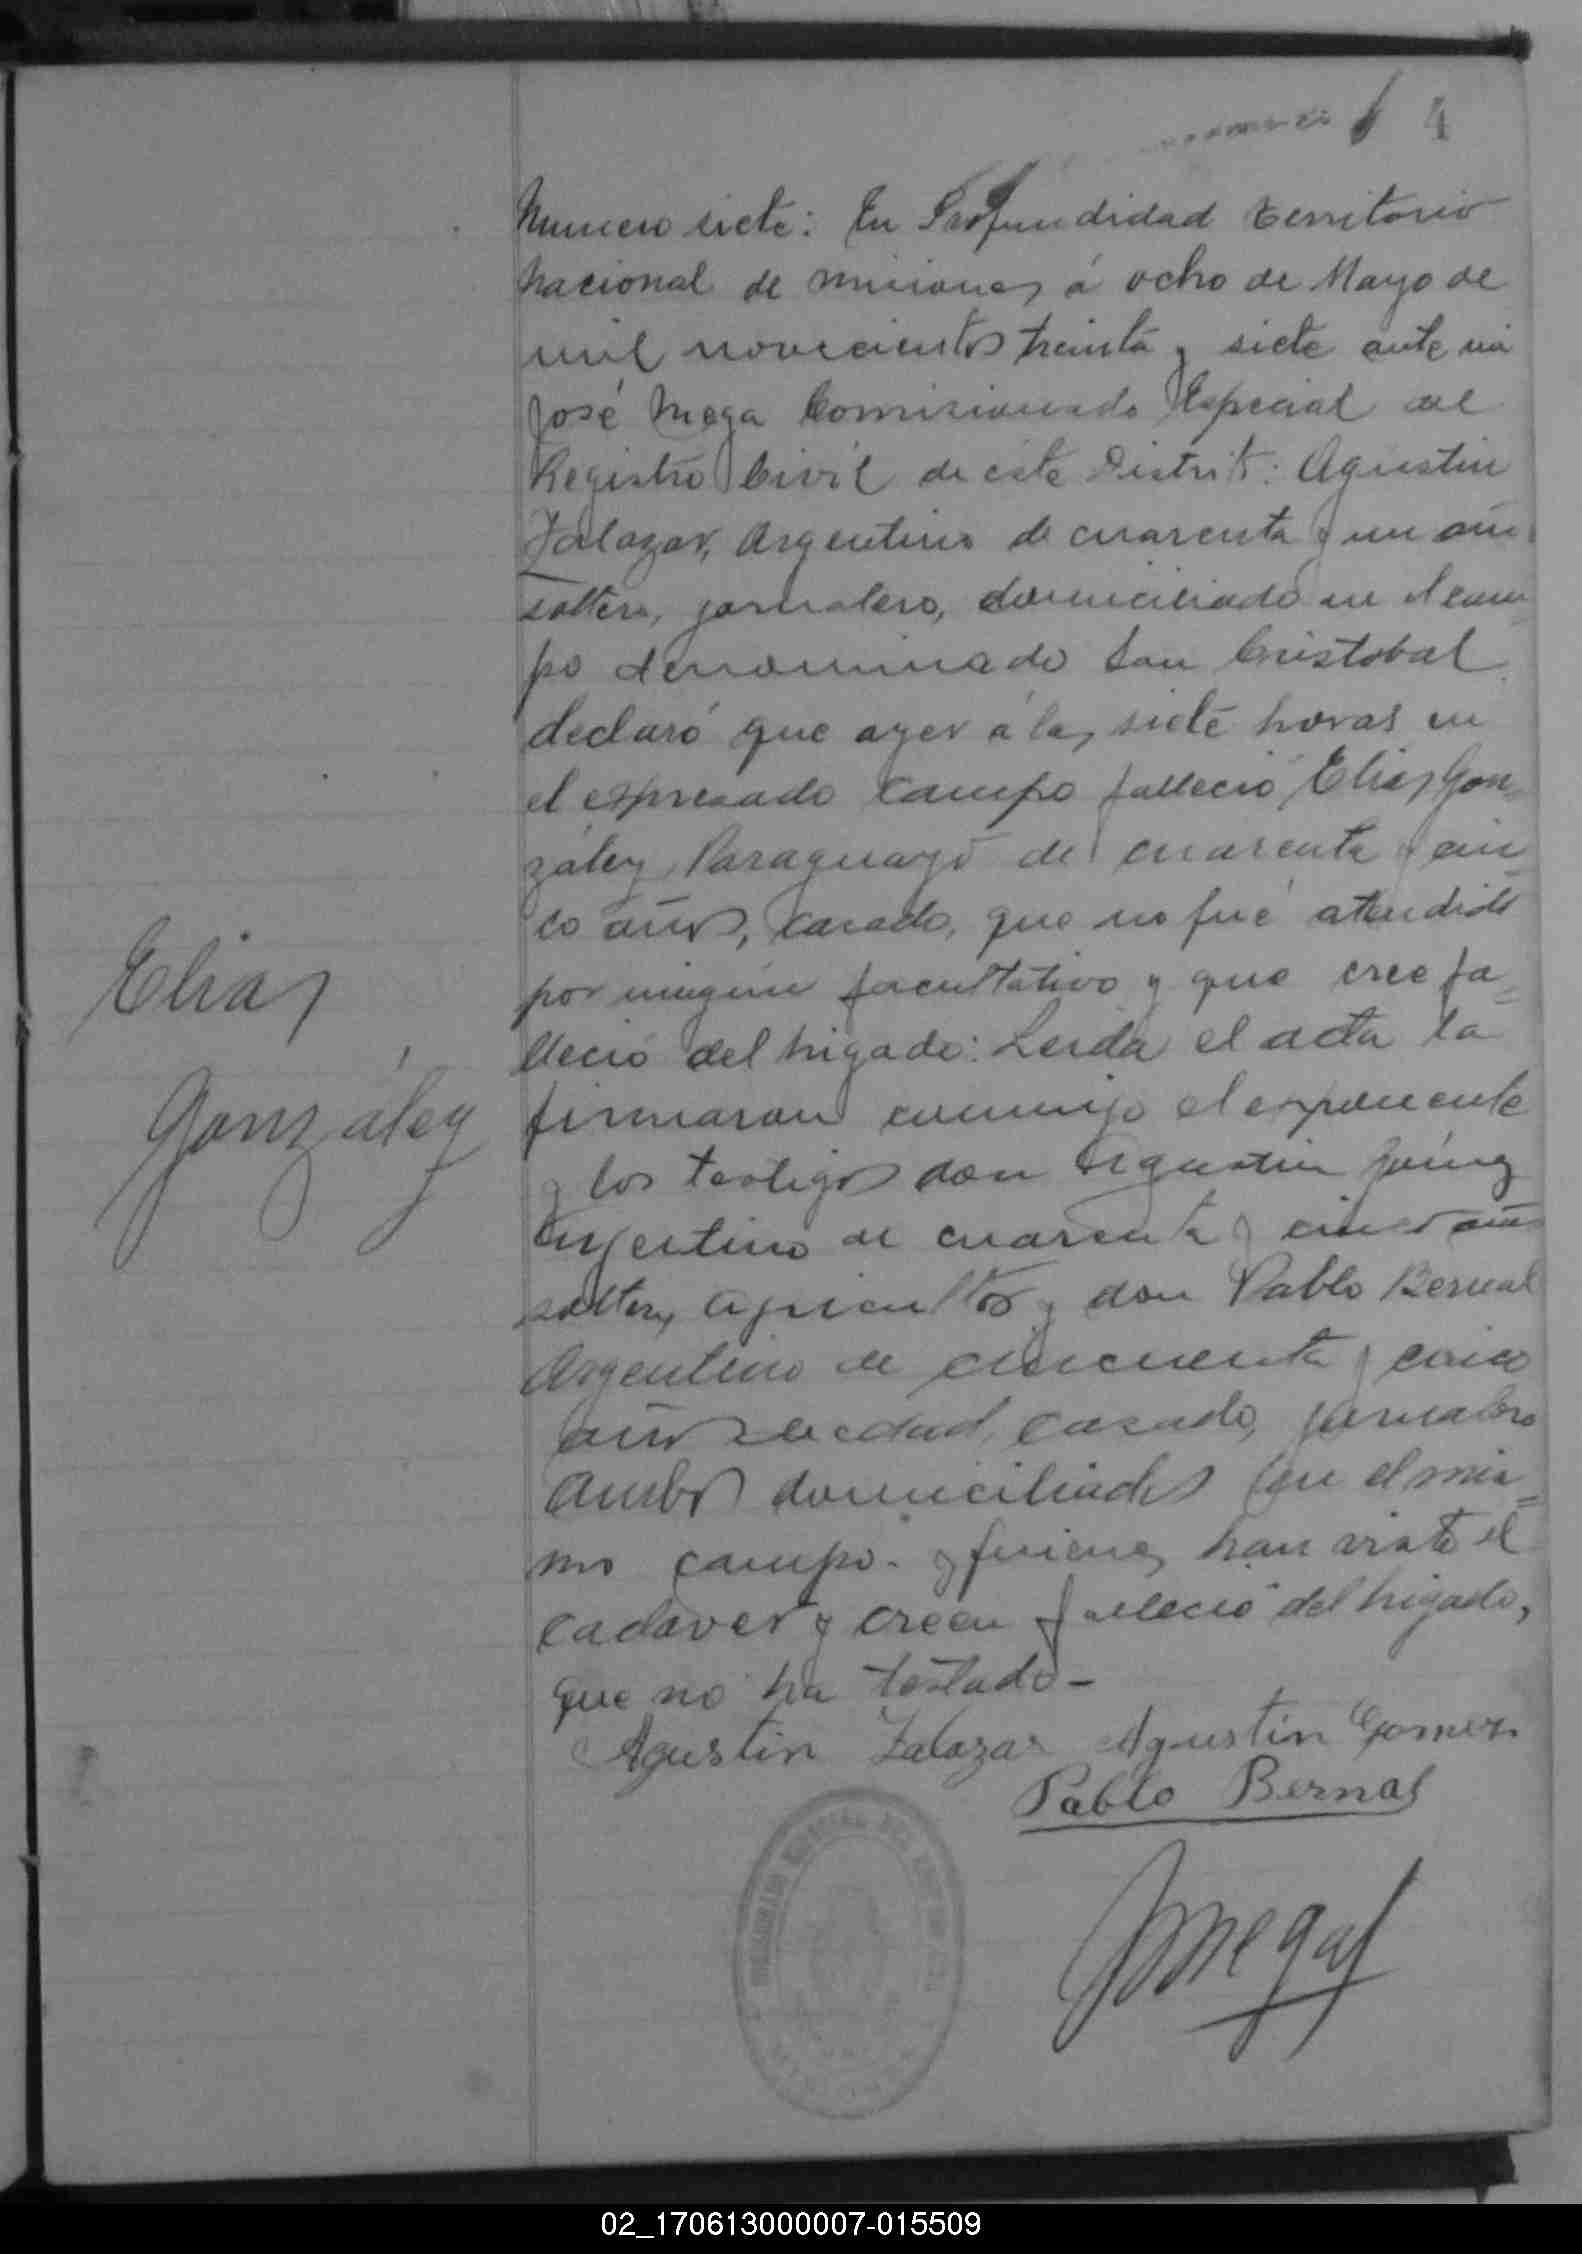 4
Numero siete: En Profundidad territorio
Nacional de misiones á ocho de Mayo de
mil novecientos treinta y siete ante mi
José Mega Comisionado Especial del
Registro Civil de este Distrito: Agustin
Zalazar, Argentino de cuarenta y un año
soltero, jornalero, domiciliado en el cam
po denominado San Cristobal
declaró que ayer á las siete horas en
el expresado campo falleció Elias Gon=
zález, Paraguayo de cuarenta y cin
co años, casado, que no fué atendido
por ningún facultativo y que cree fa=
lleció del higado: Leida el acta la
firmaron conmigo el exponente
y los testigos don Agustin Gómez
Argentino de cuarenta y cinco años
soltero, agricultor y don Pablo Bernal
Argentino de cincuenta y cinco
años de edad, casado, jornalero
ambos domiciliados en el mis=
mo campo. y quienes han visto el
cadaver y creen falleció del higado,
que no ha testado-
Elias
González
Agustin Zalazar Agustin Gomez
Pablo Bernal
JMega
02_170613000007-015509